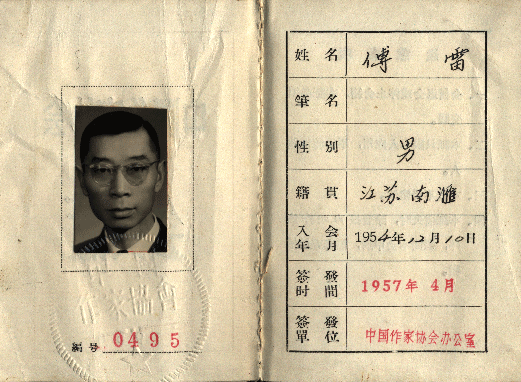 作家協會
編号 0495
姓名 傅雷
筆名
性别 男
籍貫 江苏南滙
入会年月 1954年12月10日
簽發时間 1957年4月
簽發單位 中国作家协会办公室